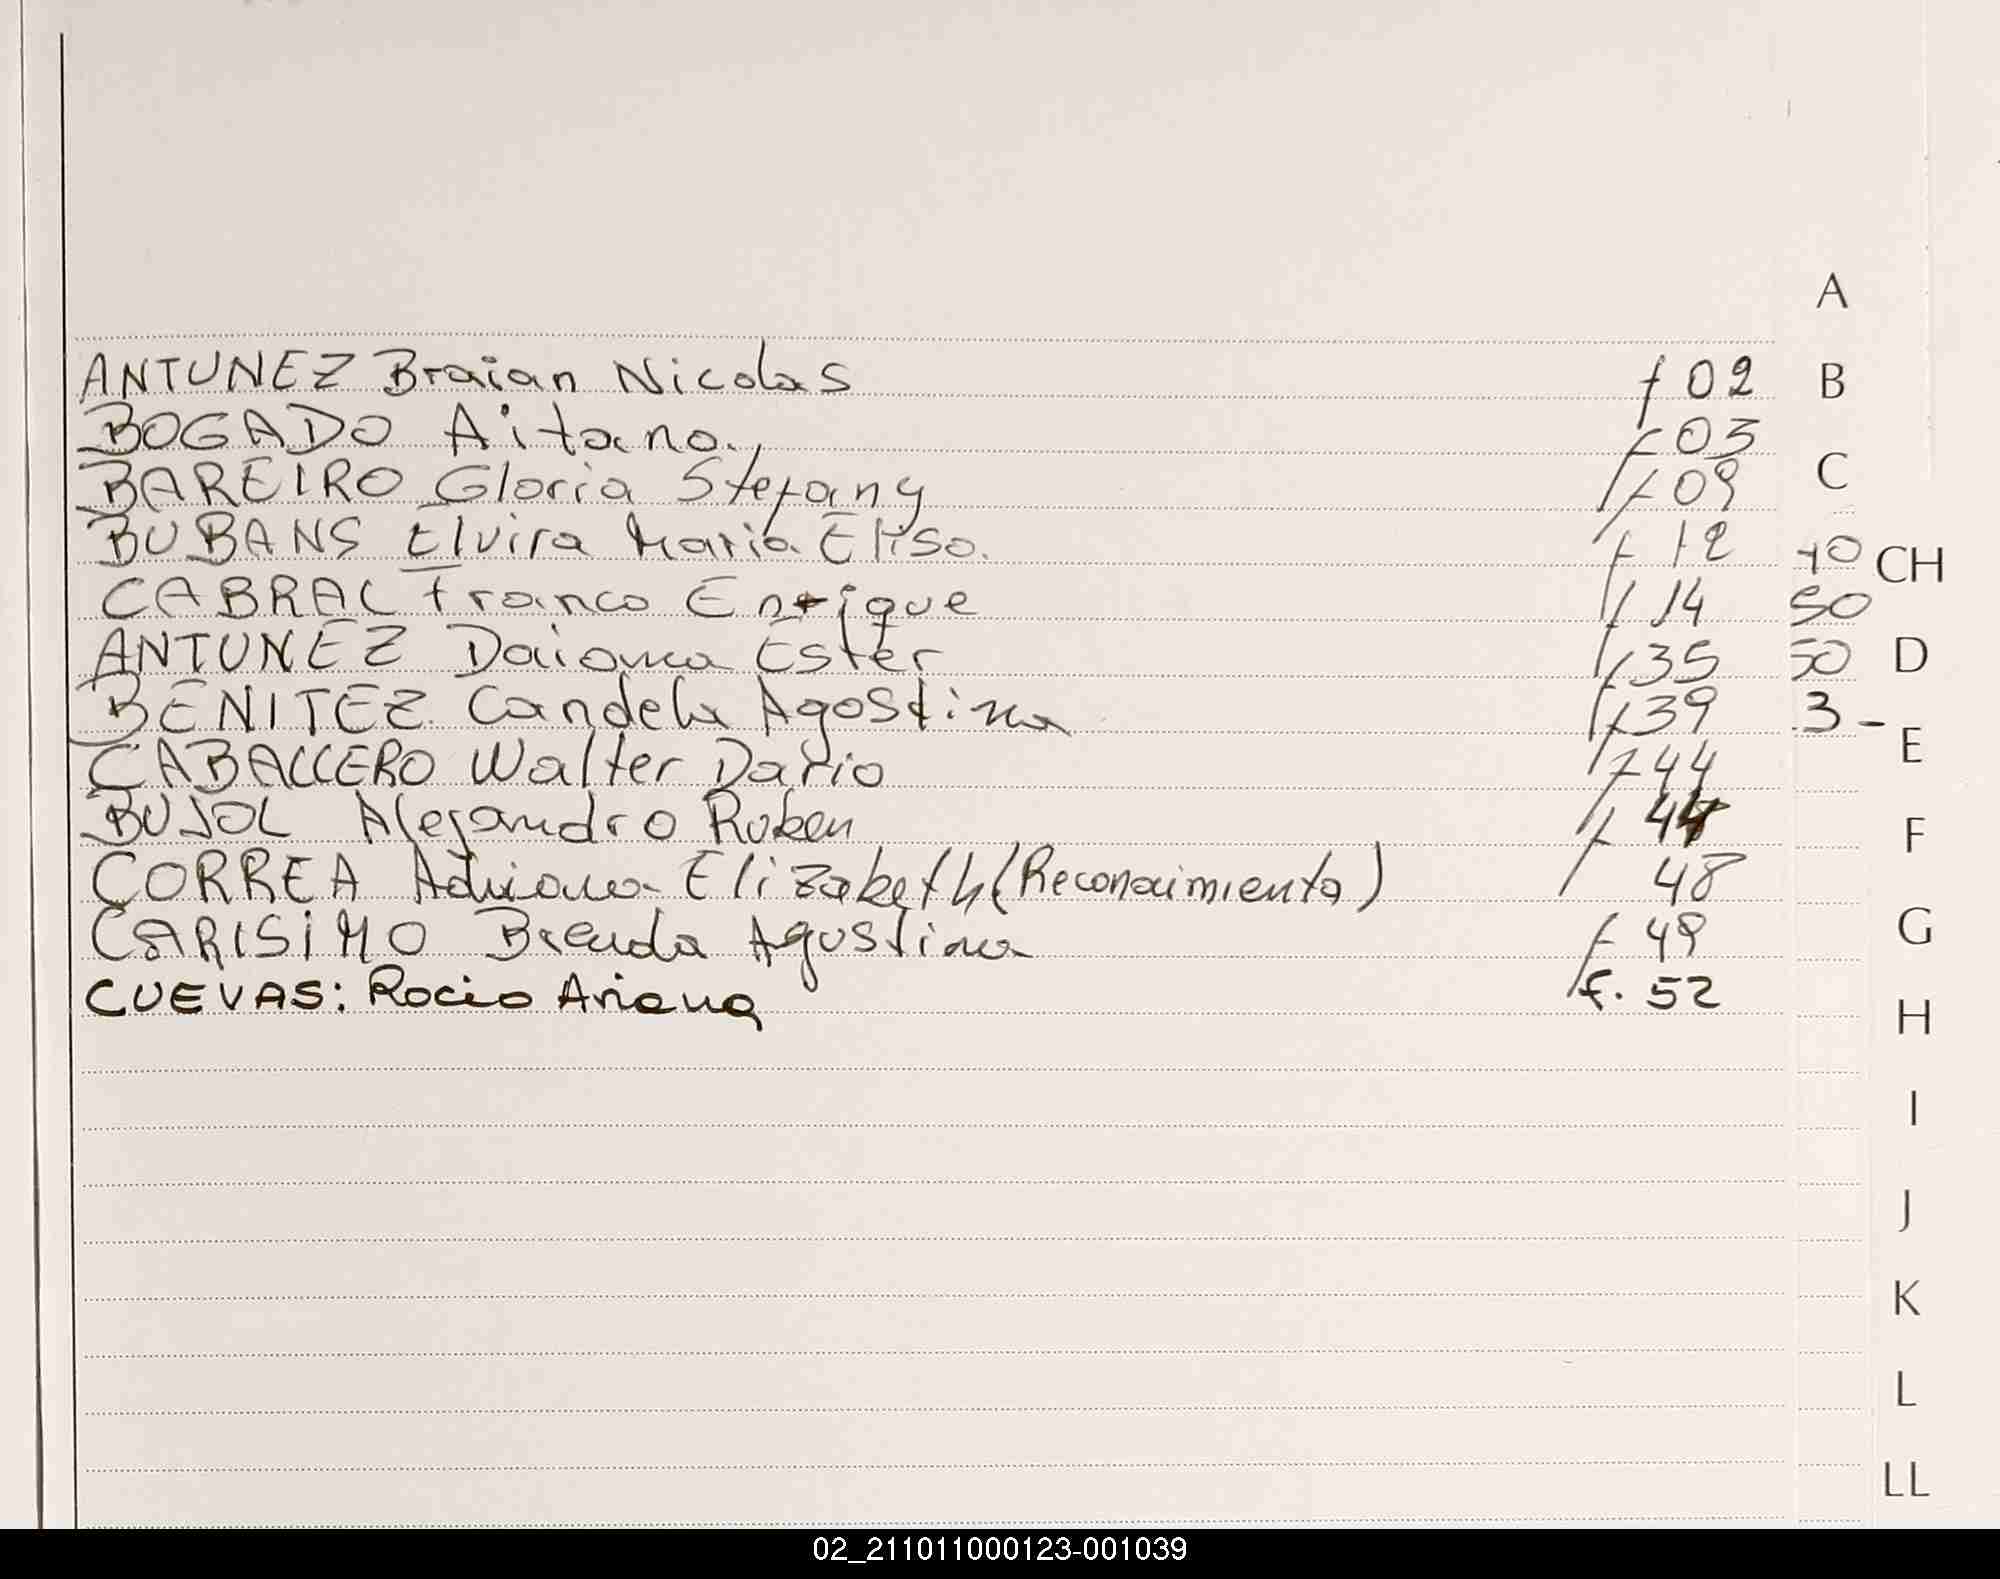 A
ANTUNEZ Braian Nicolas f 02 B
BOGADO Aitana. f 03
BAREIRO Gloria Stefany f 09 C
BUBANS Elvira Maria Elisa. f 12 10 CH
CABRAL Franco Enrique f 14 50
ANTUNEZ Daiana Ester f 35 50 D
BENITEZ Candela Agostina f 39 3- E
CABALLERO Walter Dario f 44
BUJOL Alejandro Ruben f 44 F
CORREA Adriana Elizabeth (Reconocimiento) 48
CARISIMO Brenda Agustina f 49 G
CUEVAS: Rocio Ariana f. 52 H
I
J
K
L
LL
02_211011000123-001039